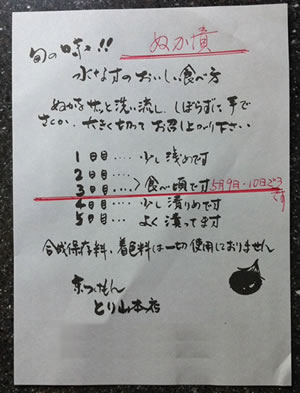 旬の味!! ぬか漬
水なすのおいしい食べ方
ぬかをサッと洗い流し、しぼらずに手で
さくか、大きく切ってお召し上がり下さい
1日目‥‥少し浅めです
2日目‥‥
3日目‥‥〉食べ頃です 5月9日・10日ごろ
です
4日目‥‥少し漬りめです
5日目‥‥よく漬ってます
合成保存料、着色料は一切使用しておりません
京つけもん
とり山本店